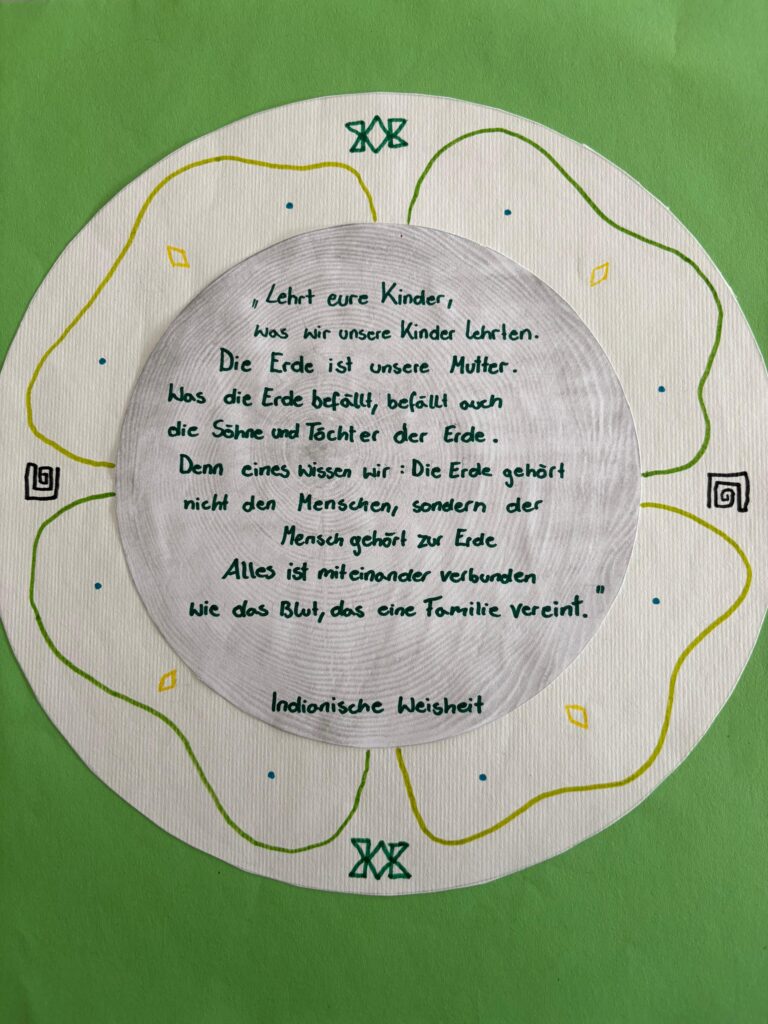 „Lehrt eure Kinder,
was wir unsere Kinder lehrten.
Die Erde ist unsere Mutter.
Was die Erde befällt, befällt auch
die Söhne und Töchter der Erde.
Denn eines wissen wir: Die Erde gehört
nicht den Menschen, sondern der
Mensch gehört zur Erde
Alles ist miteinander verbunden
wie das Blut, das eine Familie vereint."
Indianische Weisheit